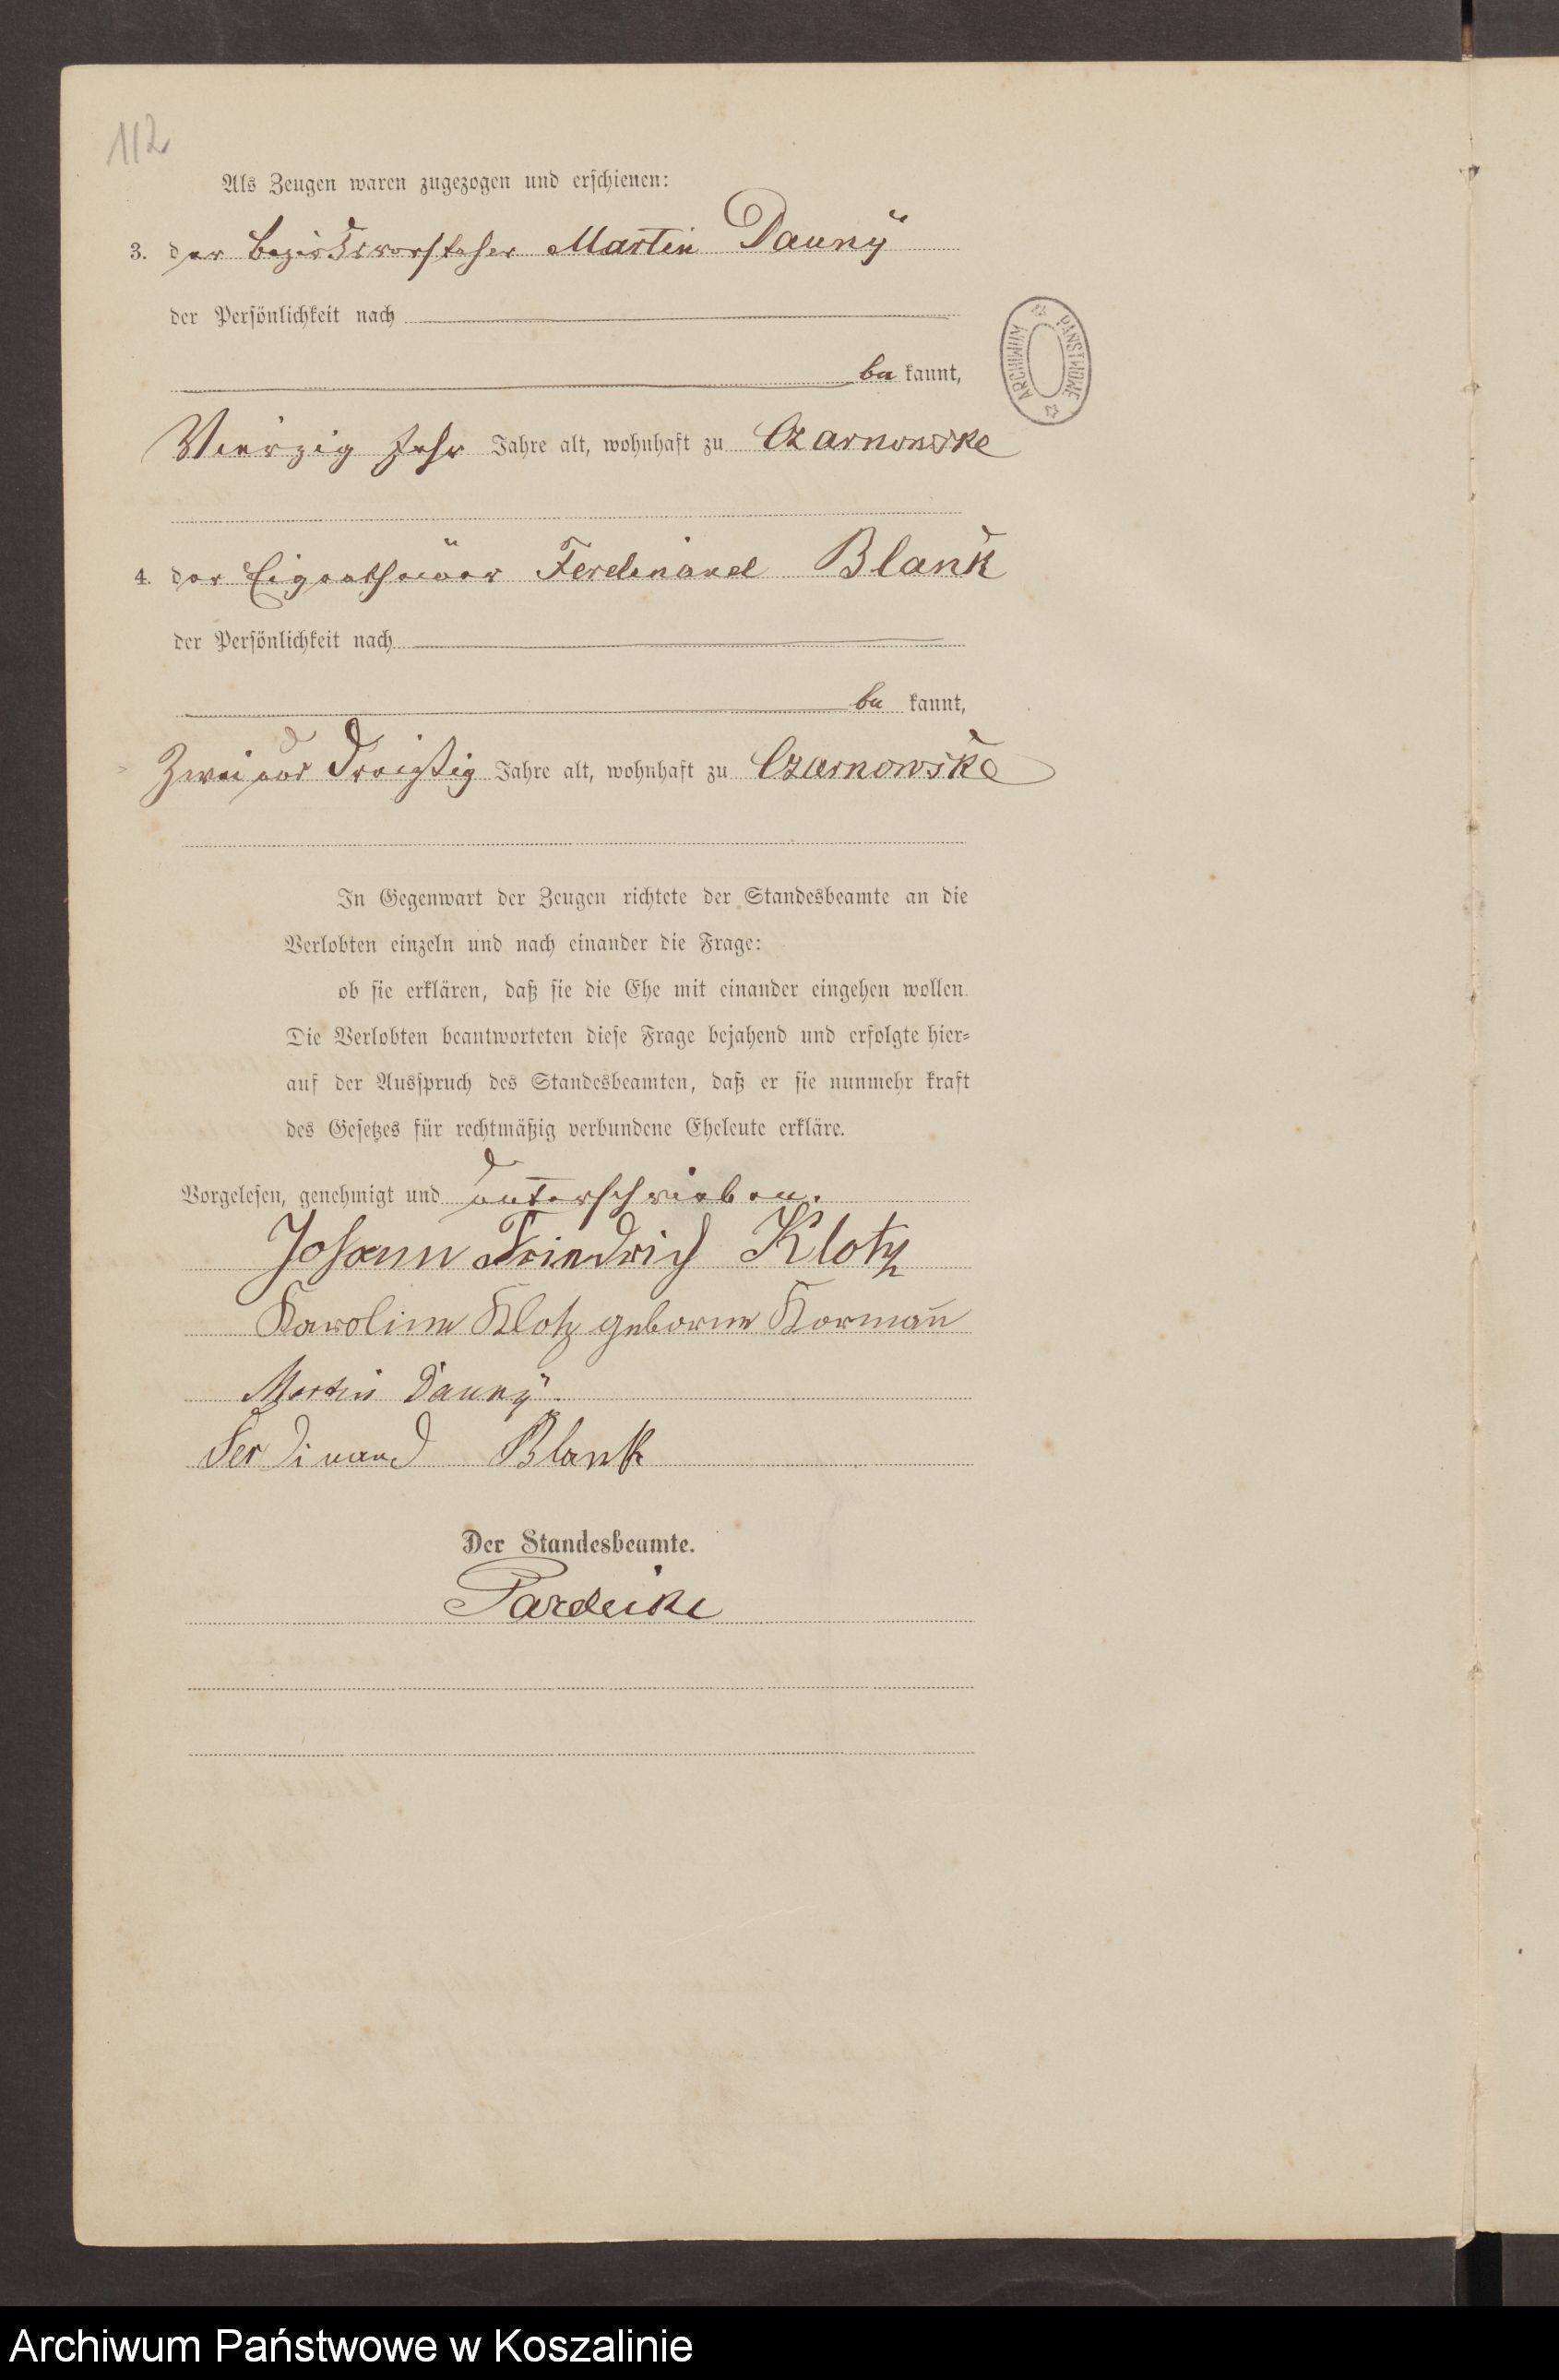 112
Als Zeugen waren zugezogen und erschienen:
3. der Bezirksvorsteher Martin Dauny
der Persönlichkeit nach
be kannt,
Vierzig Jahr Jahre alt, wohnhaft zu Czarnowske
4. der Eigenthümer Ferdinand Blank
der Persönlichkeit nach
be kannt,
Zwei und Dreißig Jahre alt, wohnhaft zu Czarnowske
In Gegenwart der Zeugen richtete der Standesbeamte an die
Verlobten einzeln und nach einander die Frage:
ob sie erklären, daß sie die Ehe mit einander eingehen wollen.
Die Verlobten beantworteten diese Frage bejahend und erfolgte hier-
auf der Ausspruch des Standesbeamten, daß er sie nunmehr kraft
des Gesetzes für rechtmäßig verbundene Eheleute erkläre.
Vorgelesen, genehmigt und unterschrieben.
Johann Friedrich Klotz
Karoline Klotz geborne Kormañ
Martin Dauny
Ferdinand Blank
Der Standesbeamte.
Pardeike
ARCHIWUM PAŃSTWOWE
Archiwum Państwowe w Koszalinie